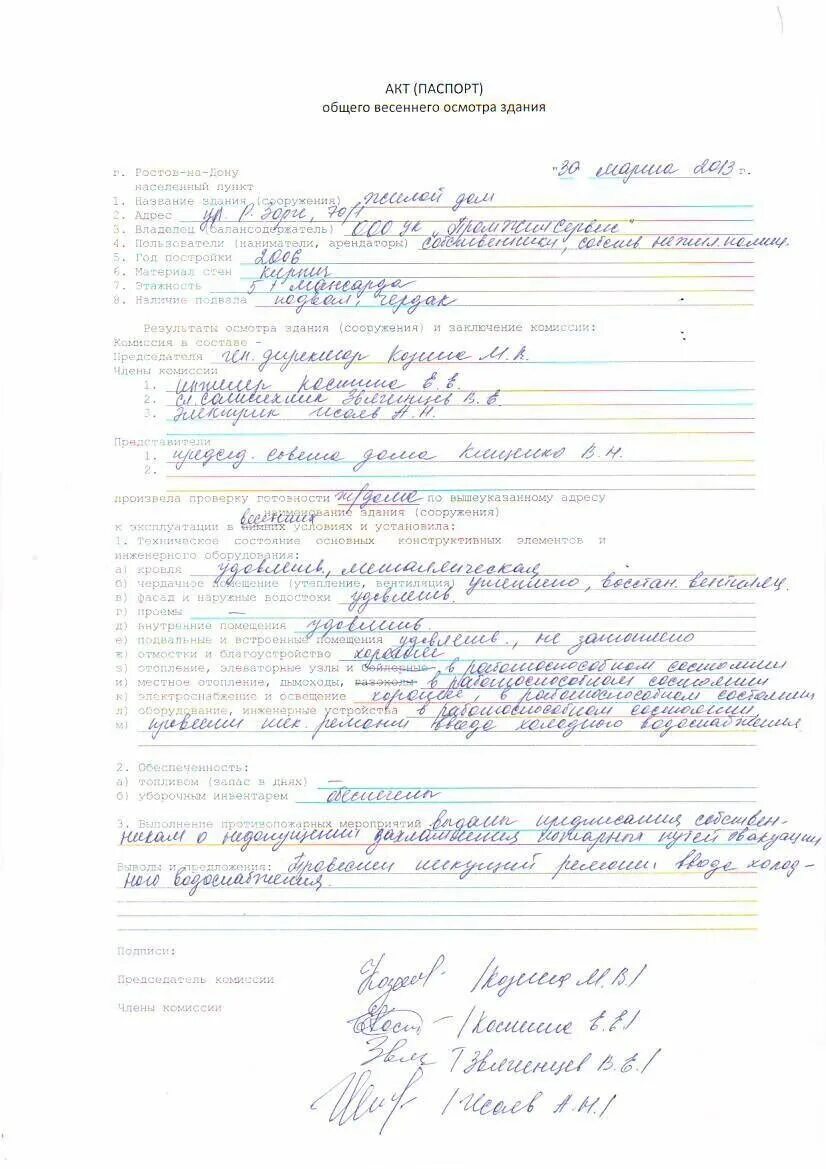 АКТ (ПАСПОРТ)
общего весеннего осмотра здания
г. Ростов-на-Дону "30 марта 2013 г.
населенный пункт
1. Название здания (сооружения) жилой дом
2. Адрес ул. Р. Зорге, 70/1
3. Владелец (балансодержатель) ООО УК "ПромЖилСервис"
4. Пользователи (наниматели, арендаторы) собственники, собств. нежил. помещ.
5. Год постройки 2006
6. Материал стен кирпич
7. Этажность 5 + мансарда
8. Наличие подвала подвал, чердак
Результаты осмотра здания (сооружения) и заключение комиссии:
Комиссия в составе -
Председателя ген. директор Козина М.В.
Члены комиссии
1. инженер Костина Е.Е.
2. сл. сантехник Звягинцев В.Е.
3. электрик Исаев А.Н.
Представители
1. председ. совета дома Клищенко В.Н.
2.
произвела проверку готовности ж/дома по вышеуказанному адресу
наименование здания (сооружения)
весенних
к эксплуатации в зимних условиях и установила:
1. Техническое состояние основных конструктивных элементов и
инженерного оборудования:
а) кровля удовлетв., металлическая
б) чердачное помещение (утепление, вентиляция) утеплено, восстан. вентиляц.
в) фасад и наружные водостоки удовлетв.
г) проемы —
д) внутренние помещения удовлетв.
е) подвальные и встроенные помещения удовлетв., не затоплено
ж) отмостки и благоустройство хорошее
з) отопление, элеваторные узлы и бойлерные в работоспособном состоянии
и) местное отопление, дымоходы, газоходы в работоспособном состоянии
к) электроснабжение и освещение хорошее в работоспособном состоянии
л) оборудование, инженерные устройства в работоспособном состоянии
м) провести тек. ремонт ввода холодного водоснабжения
2. Обеспеченность:
а) топливом (запас в днях) —
б) уборочным инвентарем обеспечены
3. Выполнение противопожарных мероприятий выданы предписания собствен-
никам о недопущении захламления пожарных путей эвакуации
Выводы и предложения: Провести текущий ремонт ввода холод-
ного водоснабжения.
Подписи:
Председатель комиссии /Козина М.В/
Члены комиссии
/Костина Е.Е/
/Звягинцев В.Е./
/Исаев А.Н./